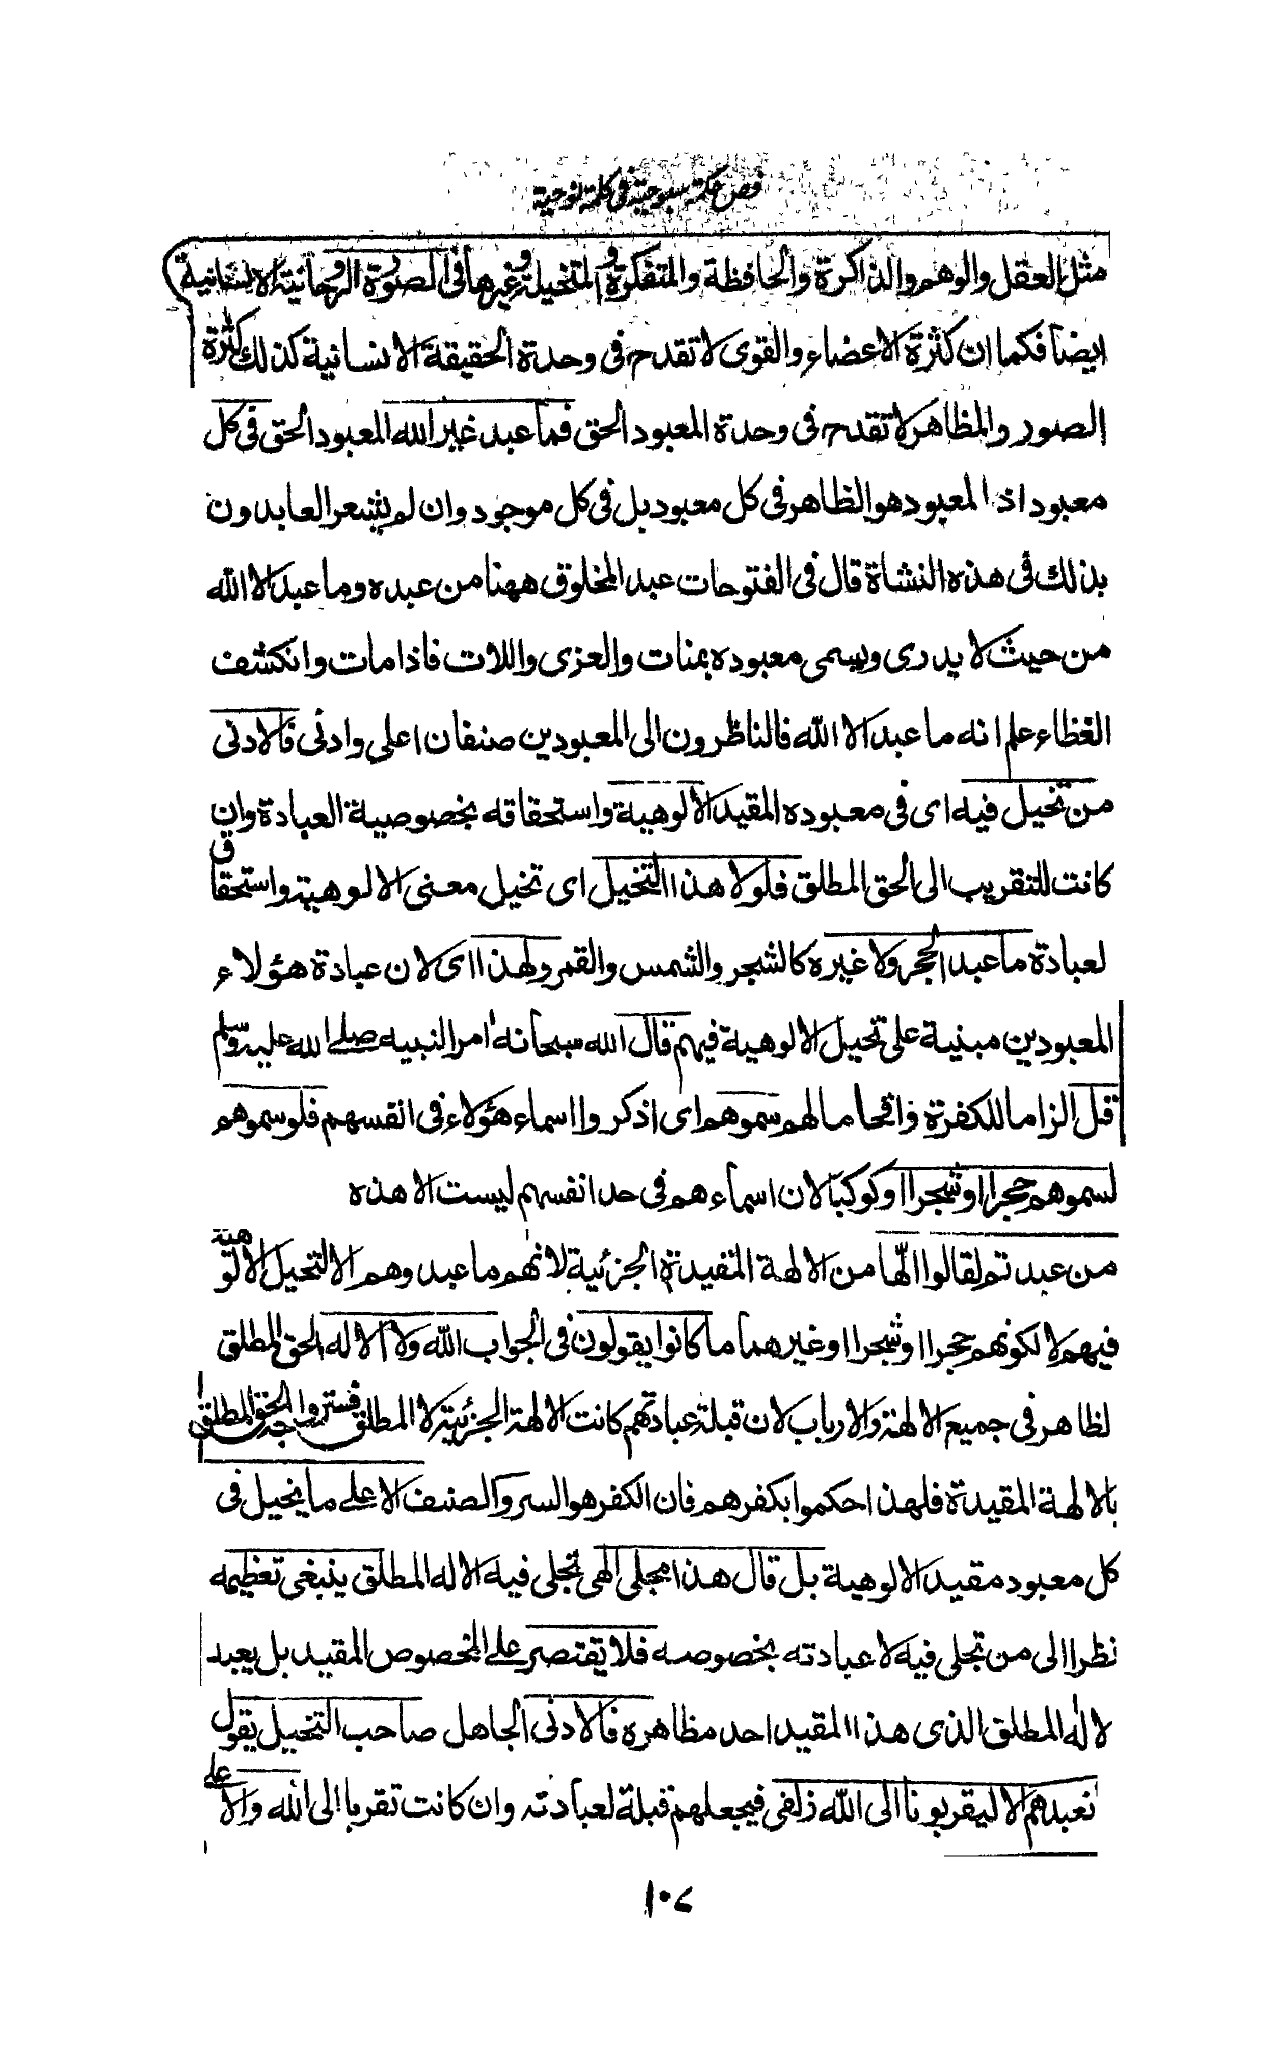 فص حكمة سبوحية فى كلمة نوحية
مثل العقل والوهم والذاكرة والحافظة والمتفكرة والمتخيلة وغيرها فى الصورة الروحانية الانسانية
ايضا فكما ان كثرة الاعضاء والقوى لا تقدح فى وحدة الحقيقة الانسانية كذلك كثرة
الصور والمظاهر لا تقدح فى وحدة المعبود الحق فما عبد غير الله المعبود الحق فى كل
معبود اذ المعبود هو الظاهر فى كل معبود بل فى كل موجود وان لم يشعر العابدون
بذلك فى هذه النشاة قال فى الفتوحات عبد المخلوق ههنا من عبده وما عبد الا الله
من حيث لا يدرى ويسمى معبوده بمنات والعزى واللات فاذا مات وانكشف
الغظاء علم انه ما عبد الا الله فالناظرون الى المعبودين صنفان اعلى وادنى فالادنى
من تخيل فيه اى فى معبوده المقيد الالوهية واستحقاقه بخصوصية العبادة وان
كانت للتقريب الى الحق المطلق فلولا هذا التخيل اى تخيل معنى الالوهية واستحقاق
لعبادة ما عبد الحجر ولا غيره كالشجر والشمس والقمر ولهذا اى لان عبادة هؤلاء
المعبودين مبنية على تخيل الالوهية فيهم قال الله سبحانه امرا لنبيه صلى الله عليه وسلم
قل الزاما للكفرة وافحاما لهم سموهم اى اذكروا اسماء هؤلاء فى انفسهم فلو سموهم
لسموهم حجرا او شجرا او كوكبا لان اسماءهم فى حد انفسهم ليست الا هذه
من عبدتم لقالوا الٰها من الالهة المقيدة الجزئية لانهم ما عبدوهم الا لتخيل الالوهية
فيهم لا لكونهم حجرا او شجرا او غيرهما ما كانوا يقولون فى الجواب الله ولا الاله الحق المطلق
لظاهر فى جميع الالهة والارباب لان قبلة عبادتهم كانت الالهة الجزئية لا المطلق فستروا الحق المطلق
بالالهة المقيدة فلهذا حكموا بكفرهم فان الكفر هو الستر والصنف الاعلے ما يخيل فى
كل معبود مقيد الالوهية بل قال هذا مجلى الهى تجلى فيه الاله المطلق ينبغى تعظيمه
نظرا الى من تجلى فيه لا عبادته بخصوصه فلا يقتصر علے الخصوص المقيد بل يعبد
لاله المطلق الذى هذا المقيد احد مظاهره فالادنى الجاهل صاحب التخيل يقول
نعبدهم الا ليقربونا الى الله زلفى فيجعلهم قبلة لعبادته وان كانت تقربا الى الله والاعلے
۱۰۷